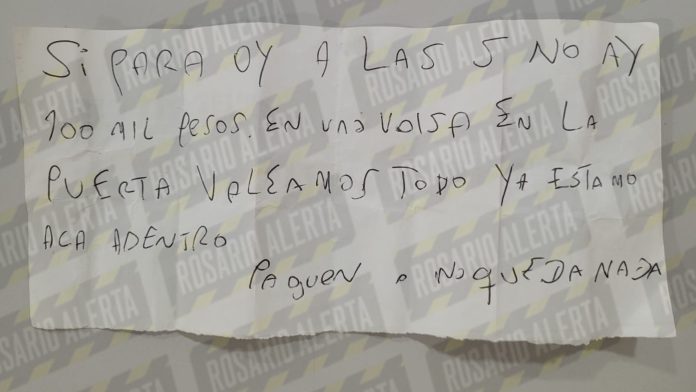 Si PARA OY A LAS 5 NO AY
100 MIL PESOS. EN UNA VOLSA EN LA
PUERTA VALEAMOS TODO YA ESTAMO
ACA ADENTRO
PAguEN o NO QUEDA NADA
ROSARIO ALERTA